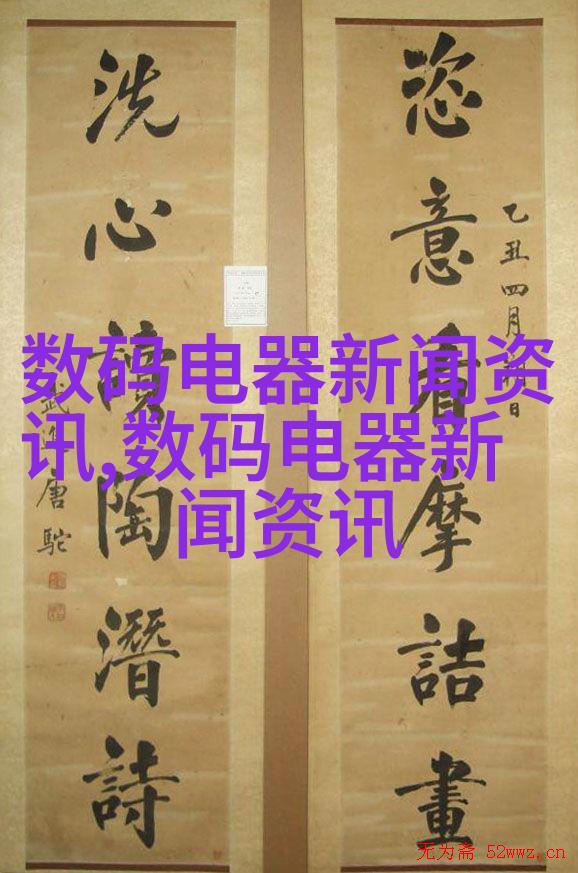 恣意看摩詰畫
乙丑四月日
洗心陶潛詩
武進唐駝
数码电器新闻资
讯,数码电器新
闻资讯
无为斋 52wwz.cn